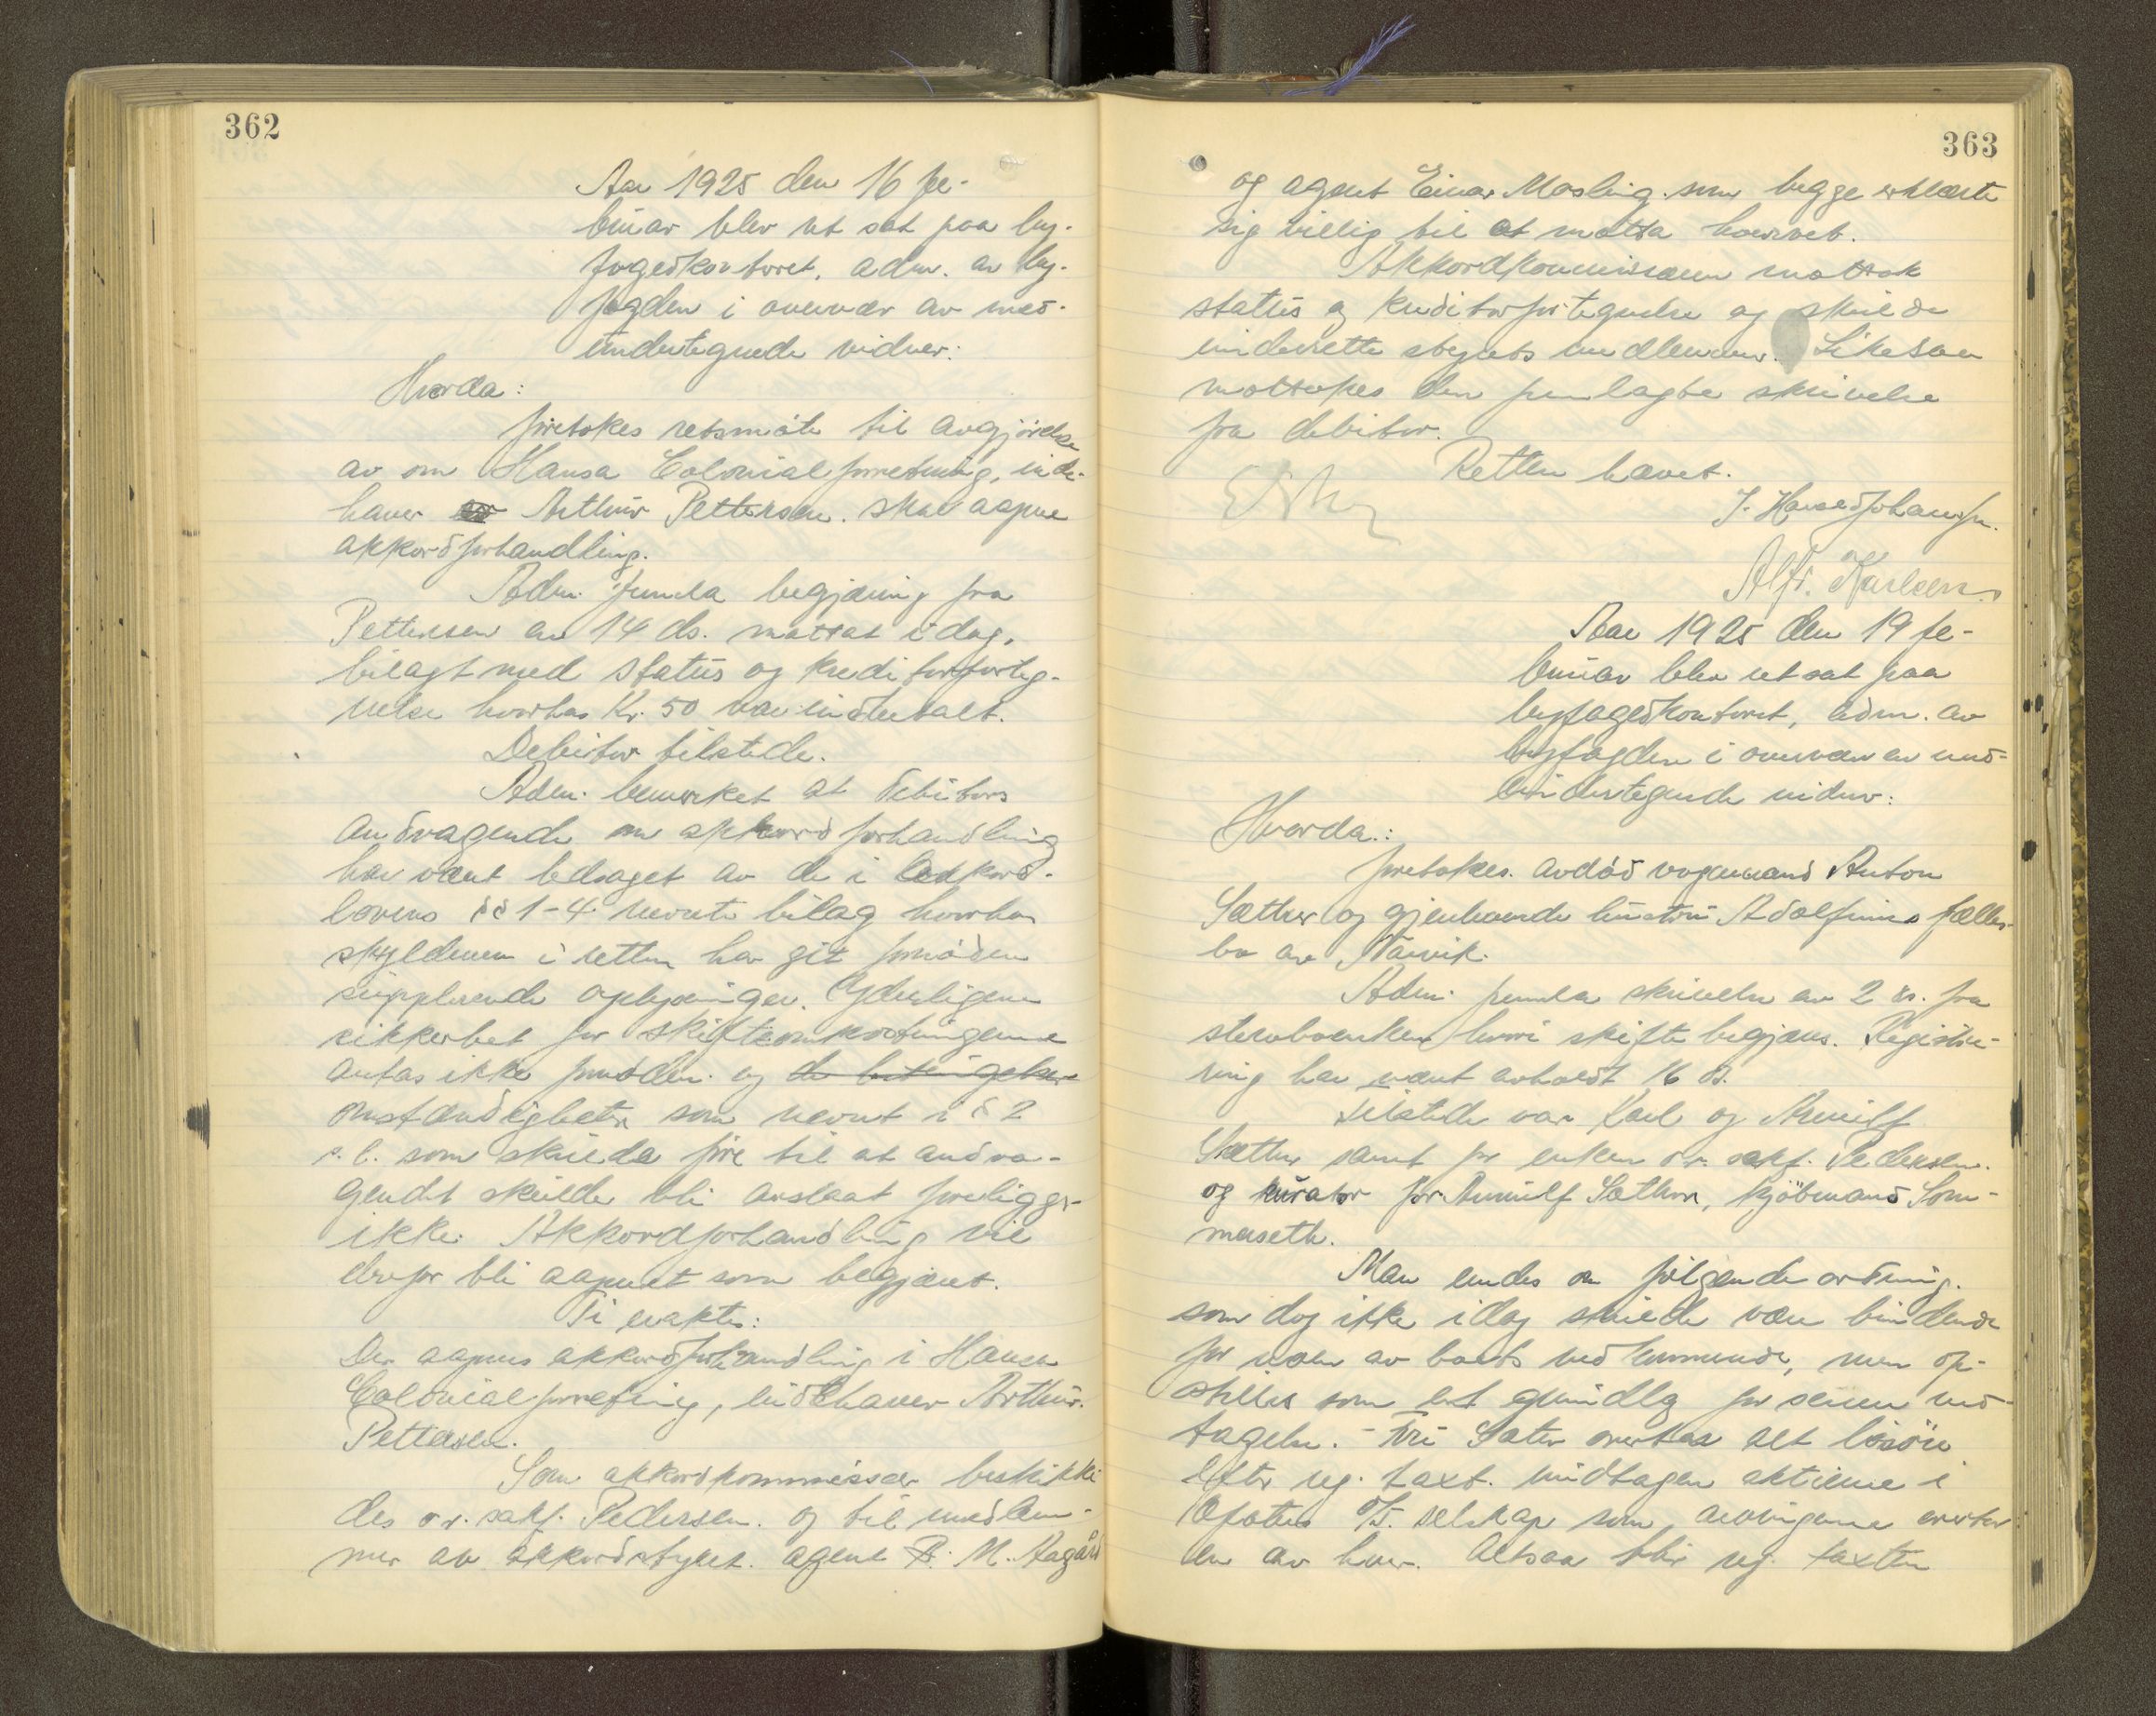 362
Aar 1925 den 16 fe-
bruar blev ret sat paa by-
fogedkontoret, adm. av by-
fogden i overvær av med-
undertegnede vidner:
Hvorda:
foretokes retsmøte til avgjørelse
av om Hansa Colonialforretning, inde-
haver Arthur Pettersen. skal aapne
akkordforhandling.
Adm. fremla begjæring fra
Pettersen av 14 ds. mottat idag,
bilagt med status og kreditorforteg-
nelse hvorhos Kr. 50 var indbetalt.
Debitor tilstede.
Adm. bemerket at debitors
andragende om akkordforhandling
har været ledsaget av de i akkord-
lovens §§ 1-4 nevnte bilag hvorhos
skyldneren i retten har git fornøden
supplerende oplysninger. Yderligere
sikkerhet for skifteomkostningerne
antas ikke fornøden. og de betingelser
omstændigheter som nevnt i § 2
s. l. som skulde føre til at andra-
gendet skulde bli avslaat foreligger
ikke. Akkordforhandling vil
derfor bli aapnet som begjæret.
Ti eragtes:
Der aapnes akkordforhandling i Hansa
Colonialforretning, indehaver Arthur
Pettersen.
Som akkordkommissær beskikke-
des o.r. sakf. Pedersen. og til medlem-
mer av akkordstyret. agent B. M. Aagård
363
og agent Einar Mosling. som begge erklærte
sig villig til at motta hvervet.
Akkordkommissæren mottok
status og kreditorfortegnelse og skulde
underrette styrets medlemmer. Likesaa
mottokes den fremlagte skrivelse
fra debitor.
Retten hævet.
J. Hansed Johansen.
Alfr. Karlsen
Aar 1925 den 19 fe-
bruar blev ret sat paa
byfogedkontoret, adm. av
byfogden i overvær av med-
undertegnede vidner:
Hvorda:
foretokes. avdød vognmand Anton
Sæther og gjenlevende hustru Adolfines fælles-
bo av Narvik.
Adm. fremla skrivelse av 2 ds. fra
stervboenken hvori skifte begjæres. Registre-
ring har været avholdt 16 ds.
Tilstede var Karl og Arnulf
Sæther samt for enken o.r. sakf. Pedersen.
og kurator for Arnulf Sæther, kjøbmand Som-
merseth.
Man enedes om følgende ordning.
som dog ikke idag skulde være bindende
for noen av boets vedkommende, men op-
stilles som et grundlag for senere ved-
tagelse. - Fru Sæter overtar alt løsøre
efter reg. taxt. undtagen aktierne i
Ofotens D/S. selskap som arvingerne overtar
en av hver. Altsaa blir reg. taxten